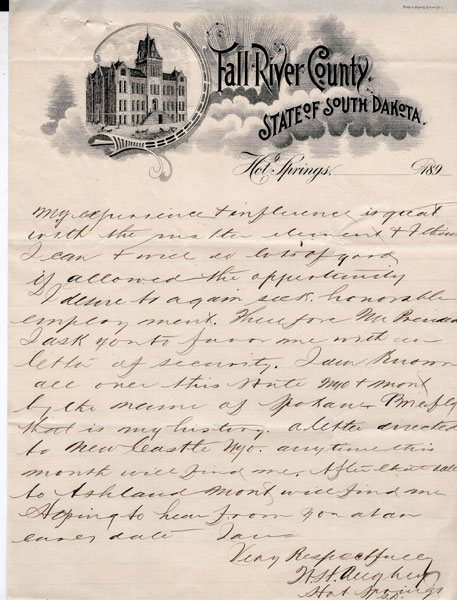 Fall River County,
STATE OF SOUTH DAKOTA.
Hot Springs, 189
My experience & influence is great
with the element &
I can & will do lots of good
if allowed the opportunity
I desire to again seek honorable
employment. Therefore Mr
I ask you to favor me with a
letter of security. I am Known
all over this State Wyo & Mont
by the name of Spokane Briefly
that is my history. a letter directed
to New Castle Wyo. anytime this
month will find me. After that date
to Ashland Mont will find me
Hoping to hear from you at an
early date I am
Very Respectfully
Hot Springs